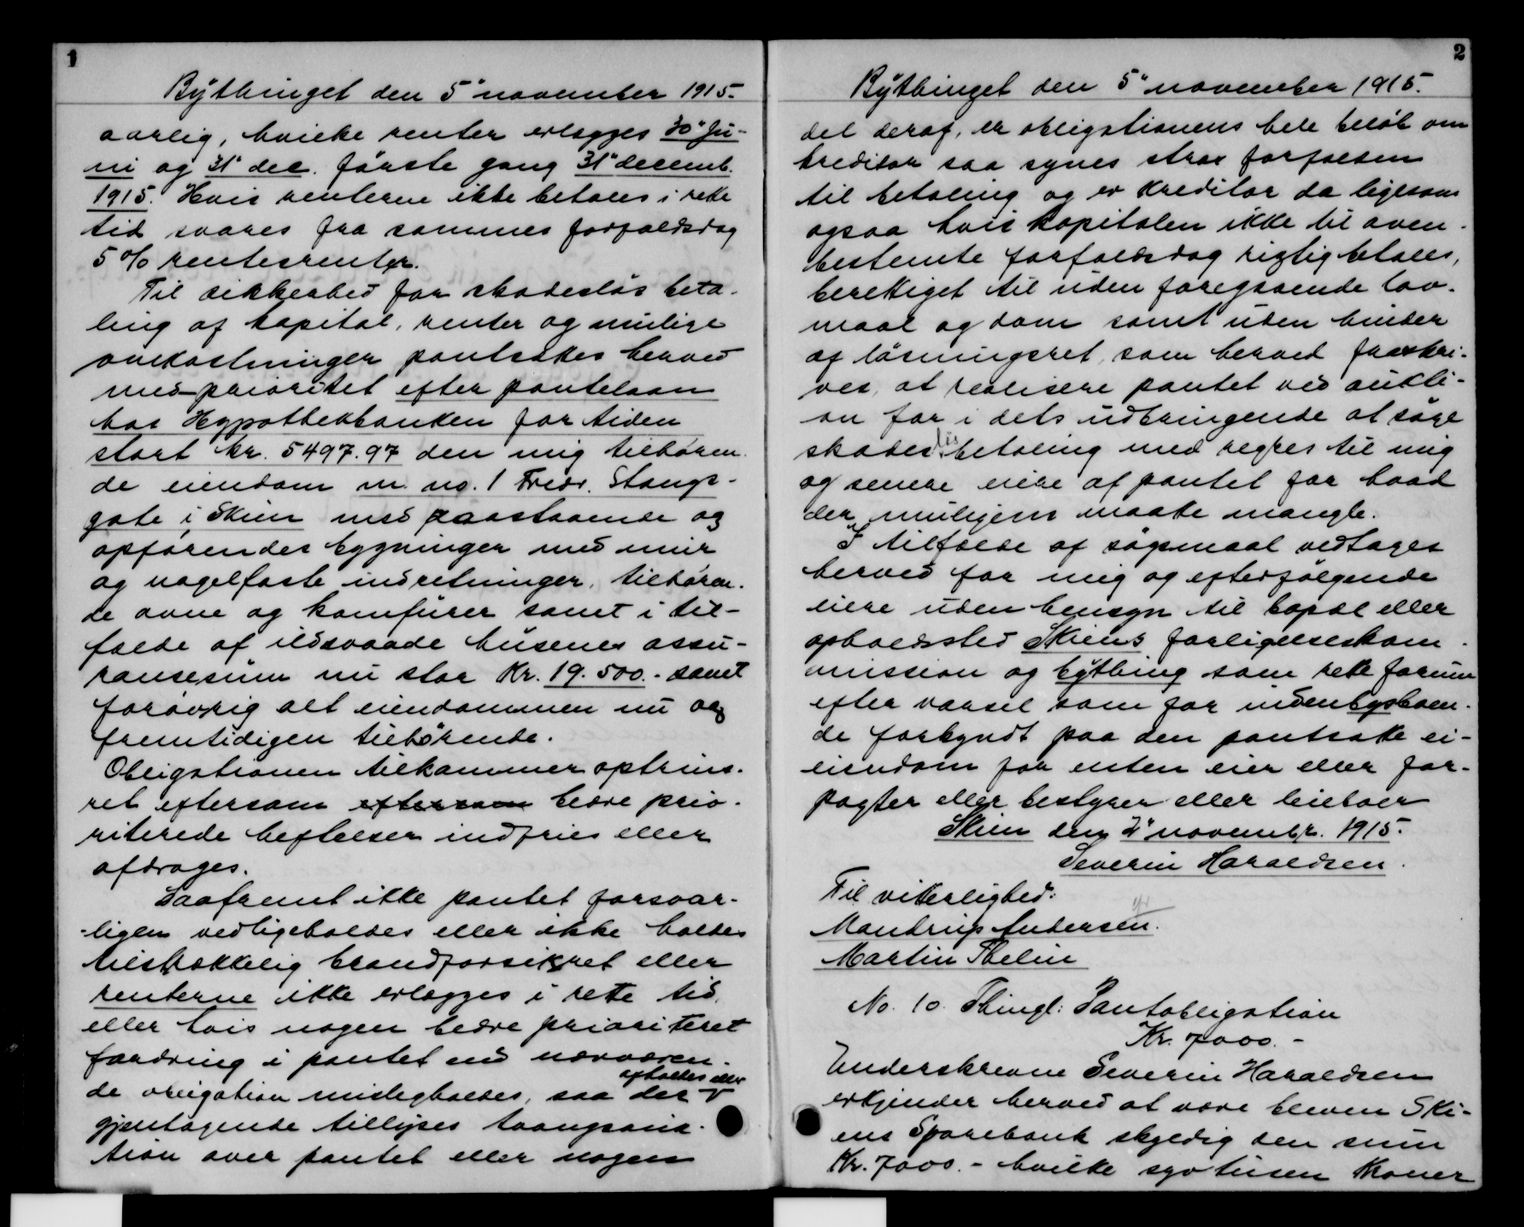 1
Bythinget den 5' november 1915.
aarlig, hvilke renter erlægges 30' Ju-
ni og 31' dec. første gang 31' decemb.
1915. Hvis renterne ikke betales i rette
tid svares fra sammes forfaldsdag
5 % rentesrenter.
Til sikkerhed for skadesløs beta-
ling af kapital, renter og mulige
omkostninger pantsættes herved
med prioritet efter pantelaan
hos Hypothekbanken for tiden
stort kr. 5497.97 den mig tilhøren-
de eiendom m. no. 1 Fredr. Stangs-
gate i Skien med paastaaende og
opførendes bygninger med mur
og nagelfaste indretninger, tilhøren-
de ovne og komfurer samt i til-
fælde af ildsvaade husenes assu-
ransesum nu stor Kr. 19.500.- samt
forøvrig alt eiendommen nu og
fremtidigen tilhørende.
Obligationen tilkommer optrins-
ret eftersom eftersom bedre prio-
riterede heftelser indfries eller
afdrages.
Saafremt ikke pantet forsvar-
ligen vedligeholdes eller ikke holdes
tilstrækkelig brandforsikret eller
renterne ikke erlægges i rette tid,
eller hvis nogen bedre prioriteret
fordring i pantet end nærværen-
afholdes eller
de obligation misligholdes, saa der
gjentagende tillyses tvangsauk-
tion over pantet eller nogen
2
Bythinget den 5' november 1915.
del deraf, er obligationens hele beløb om
kreditor saa synes strax forfalden
til betaling og er kreditor da ligesom
ogsaa hvis kapitalen ikke til oven-
bestemte forfaldsdag rigtig betales,
berettiget til uden foregaaende lov-
maal og dom samt uden hinder
af løsningsret, som herved fraskri-
ves, at realisere pantet ved aukti-
on for i dets udbringende at søge
løs
skades betaling med regres til mig
og senere eiere af pantet for hvad
der muligens maatte mangle.
I tilfælde af søgsmaal vedtages
herved for mig og efterfølgende
eiere uden hensyn til bopæl eller
opholdssted Skiens forligelseskom-
mission og bything som rette forum
efter varsel som for indenbysboen-
de forkyndt paa den pantsatte ei-
eiendom for enten eier eller for-
pagter eller bestyrer eller leieboer
Skien den 2' novembr. 1915.
Severin Haraldsen.
Til vitterlighed:
Mandrup Andersen.
Martin Thelin
No. 10. Thingl: Pantobligation
Kr. 7000.-
Underskrevne Severin Haraldsen
erkjender herved at være bleven Ski-
ens Sparebank skyldig den sum
Kr. 7000.- hvilke syv tusen Kroner